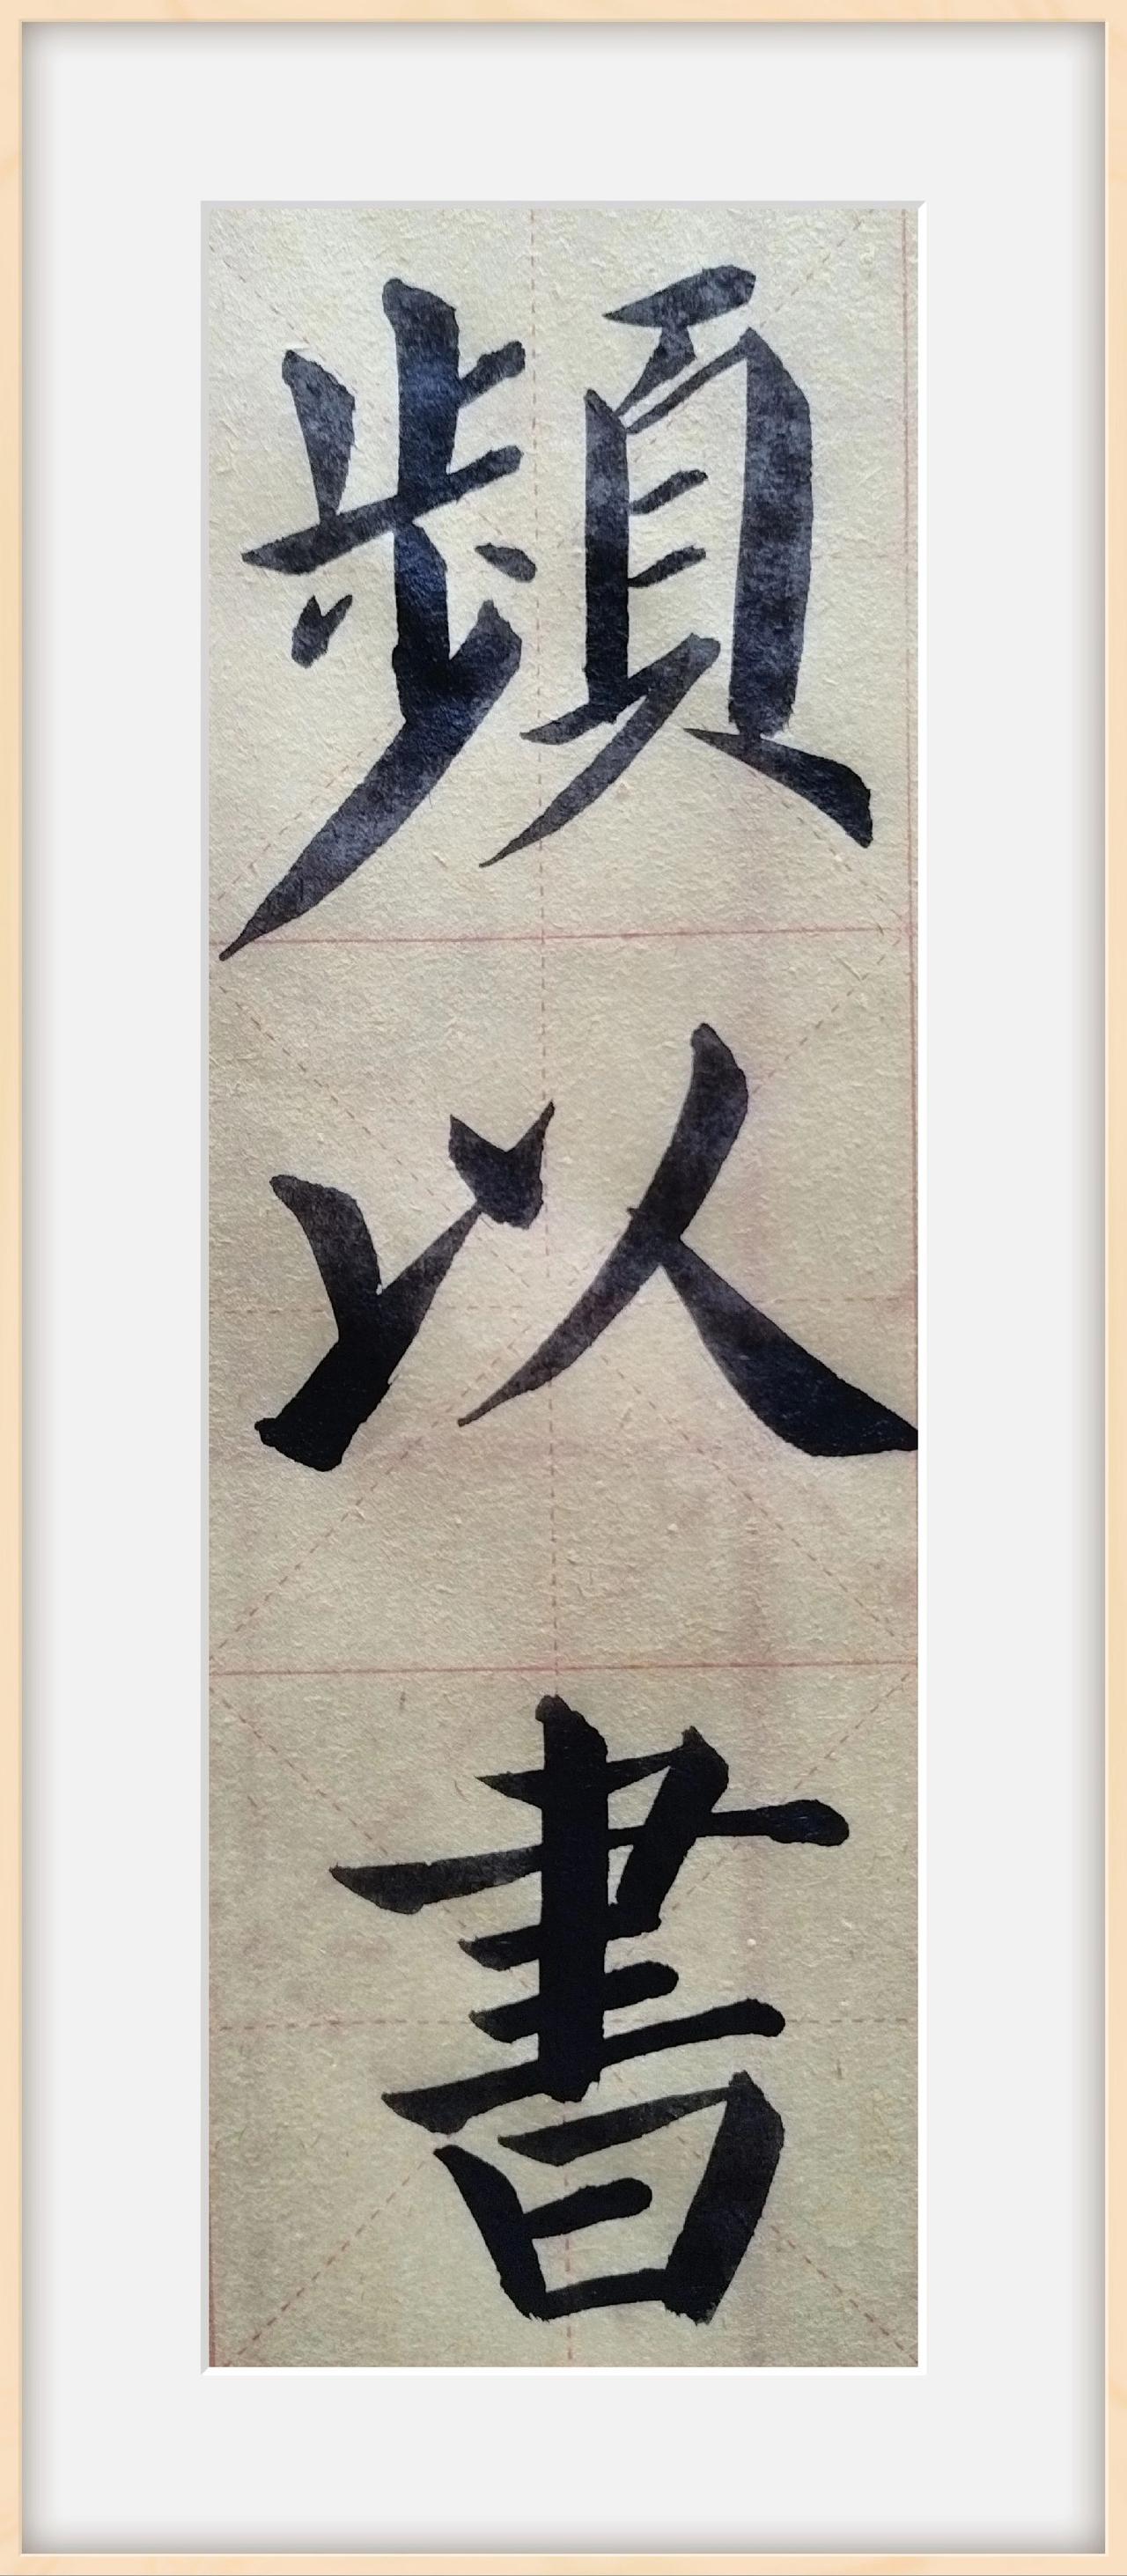 頻以書